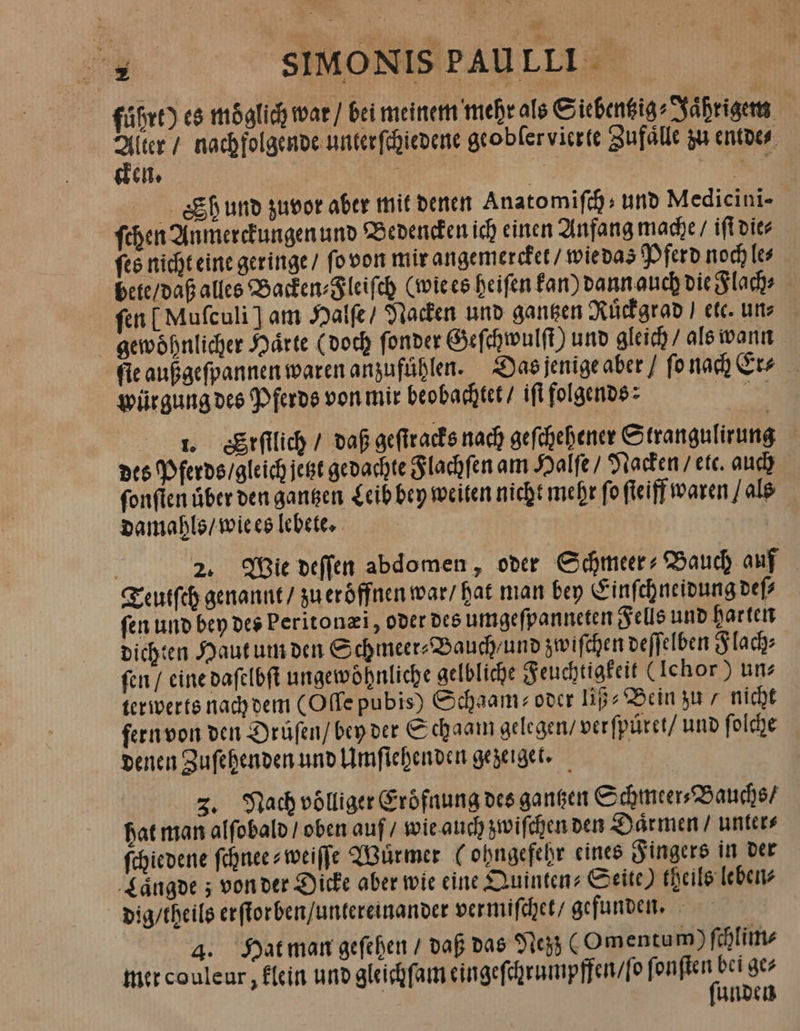 2 SIMONIS PAULLI
führt) es möglich war / bei meinem mehr als Siebentzig-Jährigem
Alter / nachfolgende unterschiedene geobservierte Zufälle zu entde-
cken.
Eh und zuvor aber mit denen Anatomisch- und Medicini-
schen Anmerckungen und Bedencken ich einen Anfang mache / ist die-
ses nicht eine geringe / so von mir angemercket / wie das Pferd noch le-
bete / daß alles Backen-Fleisch (wie es heisen kan) dann auch die Flach-
sen [Musculi] am Halse / Nacken und gantzen Rückgrad / etc. un-
gewöhnlicher Härte (doch sonder Geschwulst) und gleich / als wann
sie außgespannen waren anzufühlen. Das jenige aber / so nach Er-
würgung des Pferds von mir beobachtet / ist folgends:
1. Erstlich / daß gestracks nach geschehener Strangulirung
des Pferds / gleich jetzt gedachte Flachsen am Halse / Nacken / etc. auch
sonsten über den gantzen Leib bey weiten nicht mehr so steiff waren / als
damahls / wie es lebete.
2. Wie dessen abdomen, oder Schmeer-Bauch auf
Teutsch genannt / zu eröffnen war / hat man bey Einschneidung des-
sen und bey des Peritonæi, oder des umgespanneten Fells und harten
dichten Haut um den Schmeer-Bauch / und zwischen desselben Flach-
sen / eine daselbst ungewöhnliche gelbliche Feuchtigkeit (Ichor) un-
terwerts nach dem (Osse pubis) Schaam- oder liß-Bein zu / nicht
fern von den Drüsen / bey der Schaam gelegen / verspüret / und solche
denen Zusehenden und Umstehenden gezeiget.
3. Nach völliger Eröfnung des gantzen Schmeer-Bauchs /
hat man alsobald / oben auf / wie auch zwischen den Därmen / unter-
schiedene schnee-weisse Würmer (ohngefehr eines Fingers in der
Längde; von der Dicke aber wie eine Quinten-Seite) theils leben-
dig / theils erstorben / untereinander vermischet / gefunden.
4. Hat man gesehen / daß das Nezz (Omentum) schlim-
mer couleur, klein und gleichsam eingeschrumpffen / so sonsten bei ge-
sunden